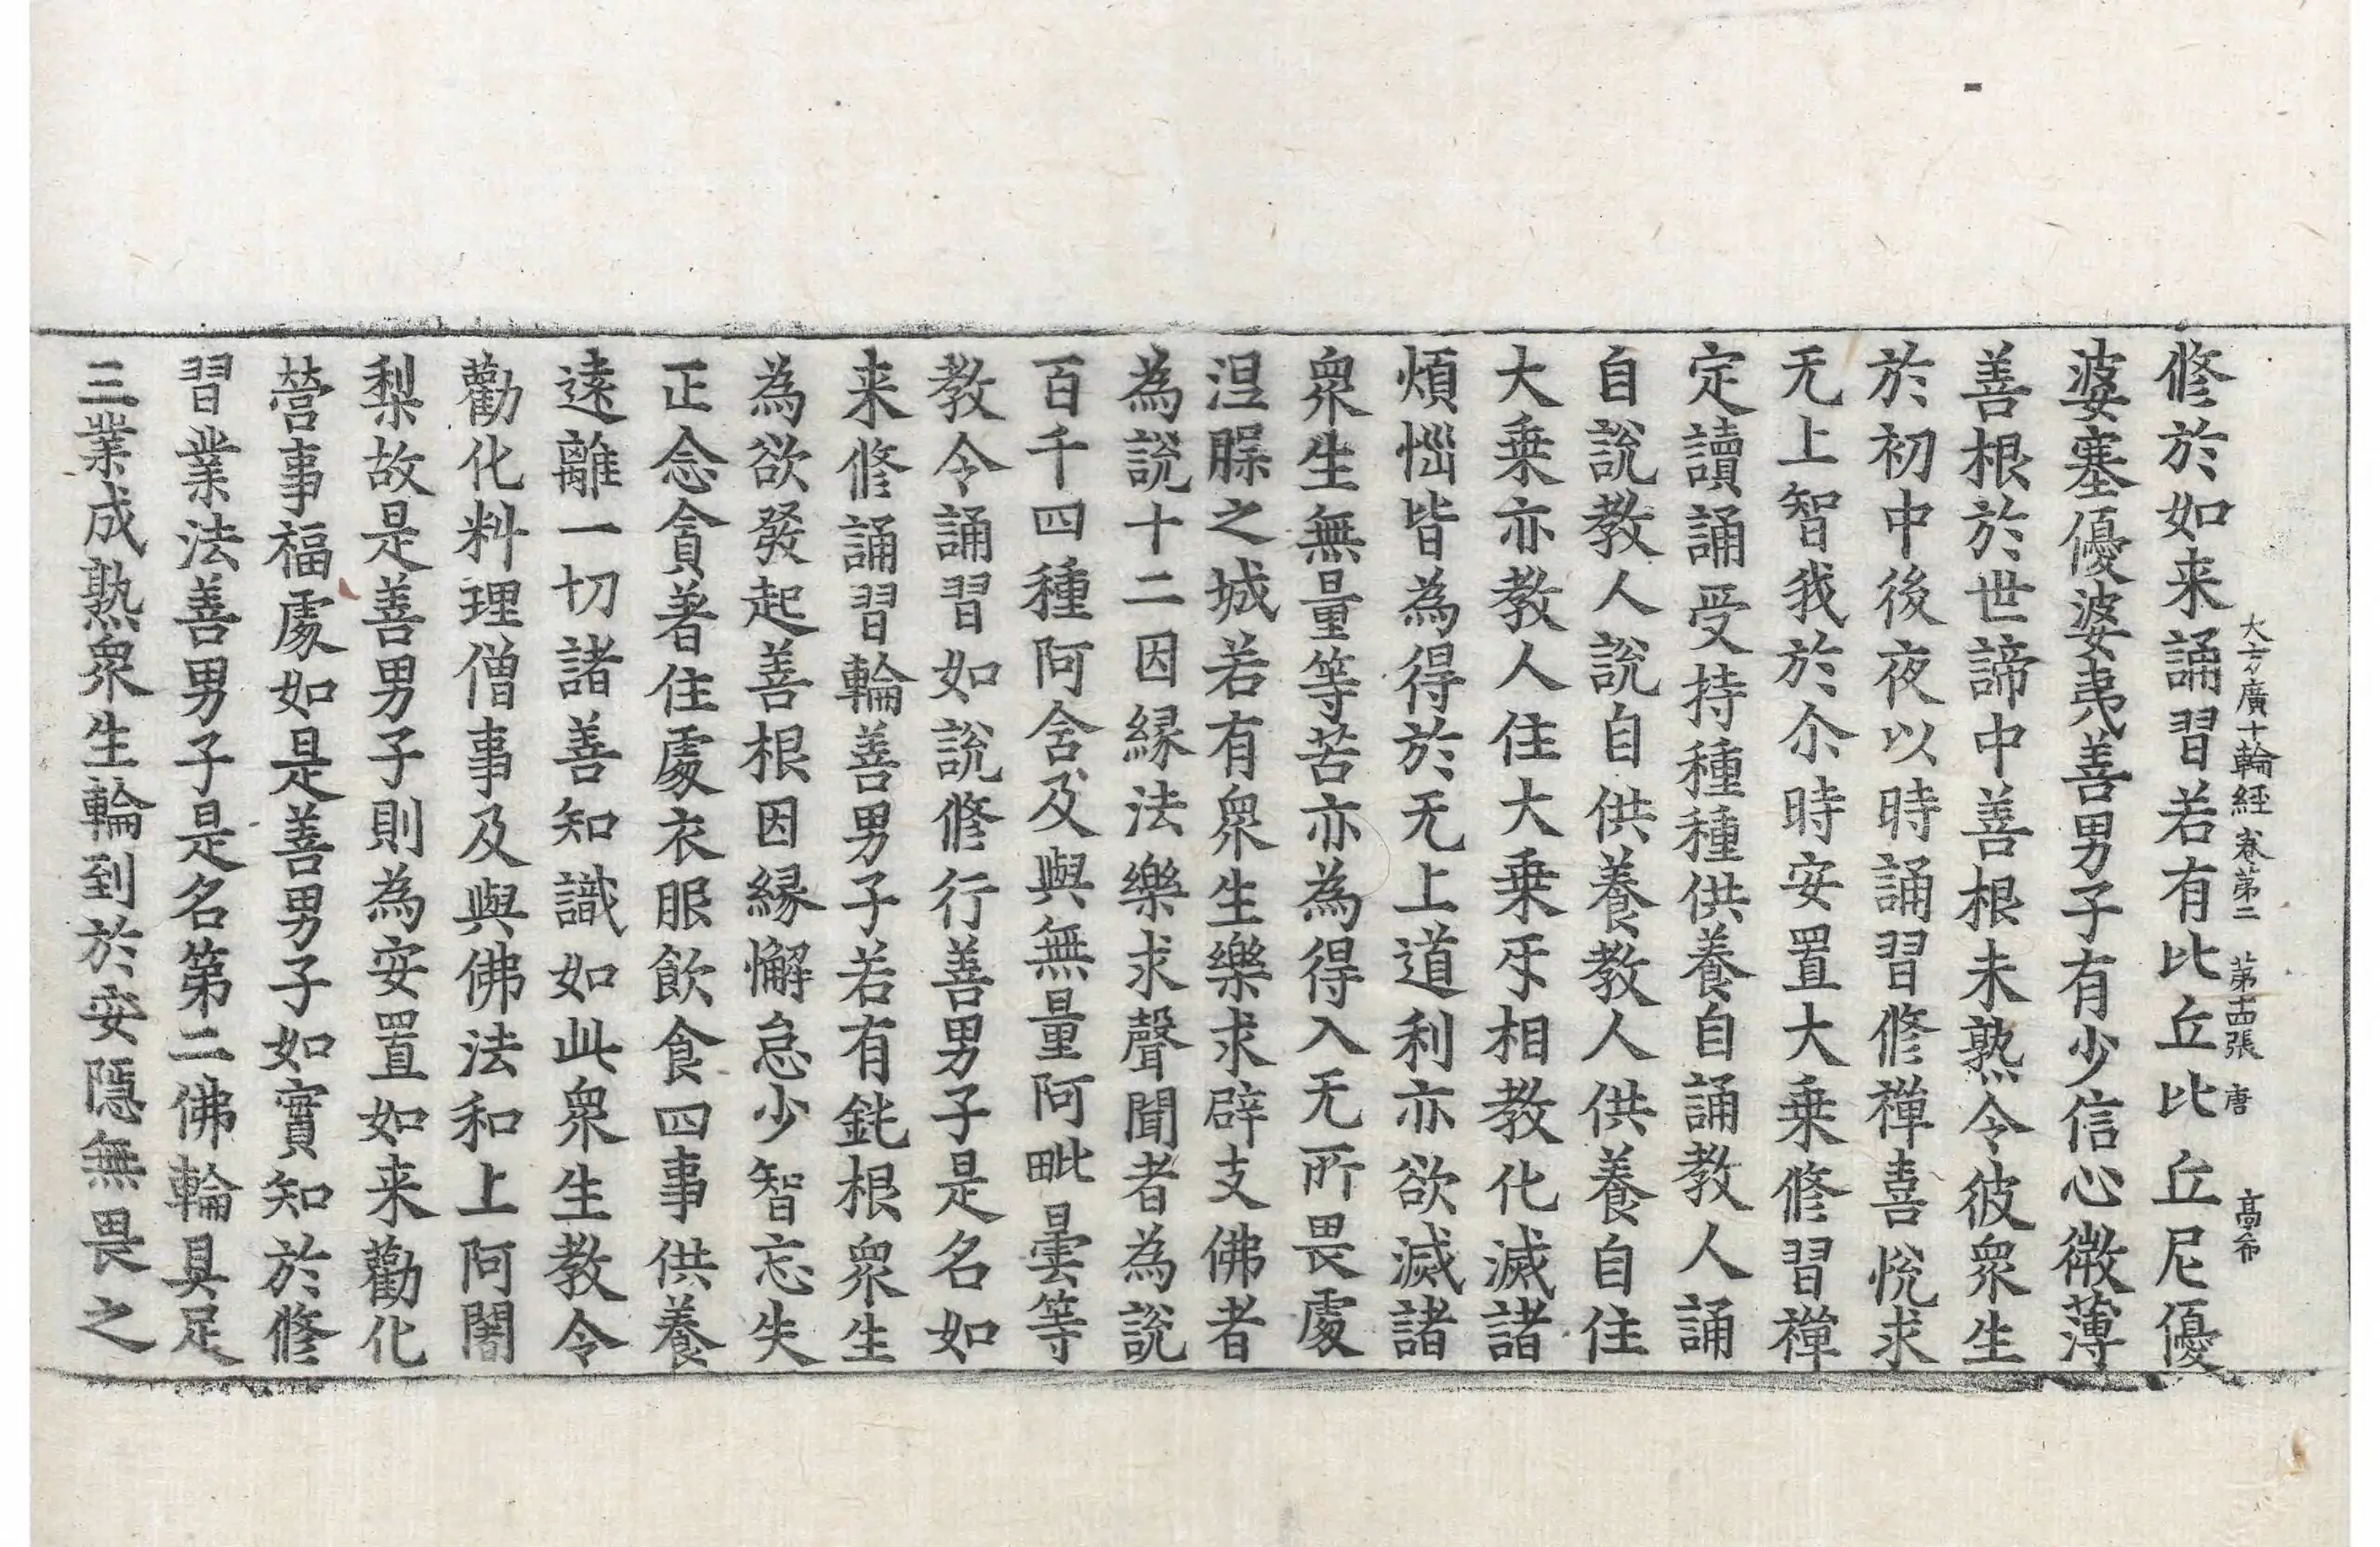 大方廣十輪經卷第二 第十四張 唐 髙希
修於如来誦習若有比丘比丘尼優
婆塞優婆夷善男子有少信心微薄
善根於世諦中善根未熟令彼衆生
於初中後夜以時誦習修禪喜悅求
无上智我於尒時安置大乗修習禪
定讀誦受持種種供養自誦教人誦
自說教人說自供養教人供養自住
大乗亦教人住大乗㸦相教化滅諸
煩惱皆為得於无上道利亦欲滅諸
衆生無量等苦亦為得入无所畏處
涅槃之城若有衆生樂求辟支佛者
為說十二因縁法樂求聲聞者為說
百千四種阿含及與無量阿毗曇等
教令誦習如說修行善男子是名如
来修誦習輪善男子若有鈍根衆生
為欲發起善根因縁懈怠少智忘失
正念貪著住處衣服飲食四事供養
遠離一切諸善知識如此衆生教令
勸化料理僧事及與佛法和上阿闍
梨故是善男子則為安置如来勸化
營事福處如是善男子如實知於修
習業法善男子是名第二佛輪具足
三業成熟衆生輪到於安隱無畏之